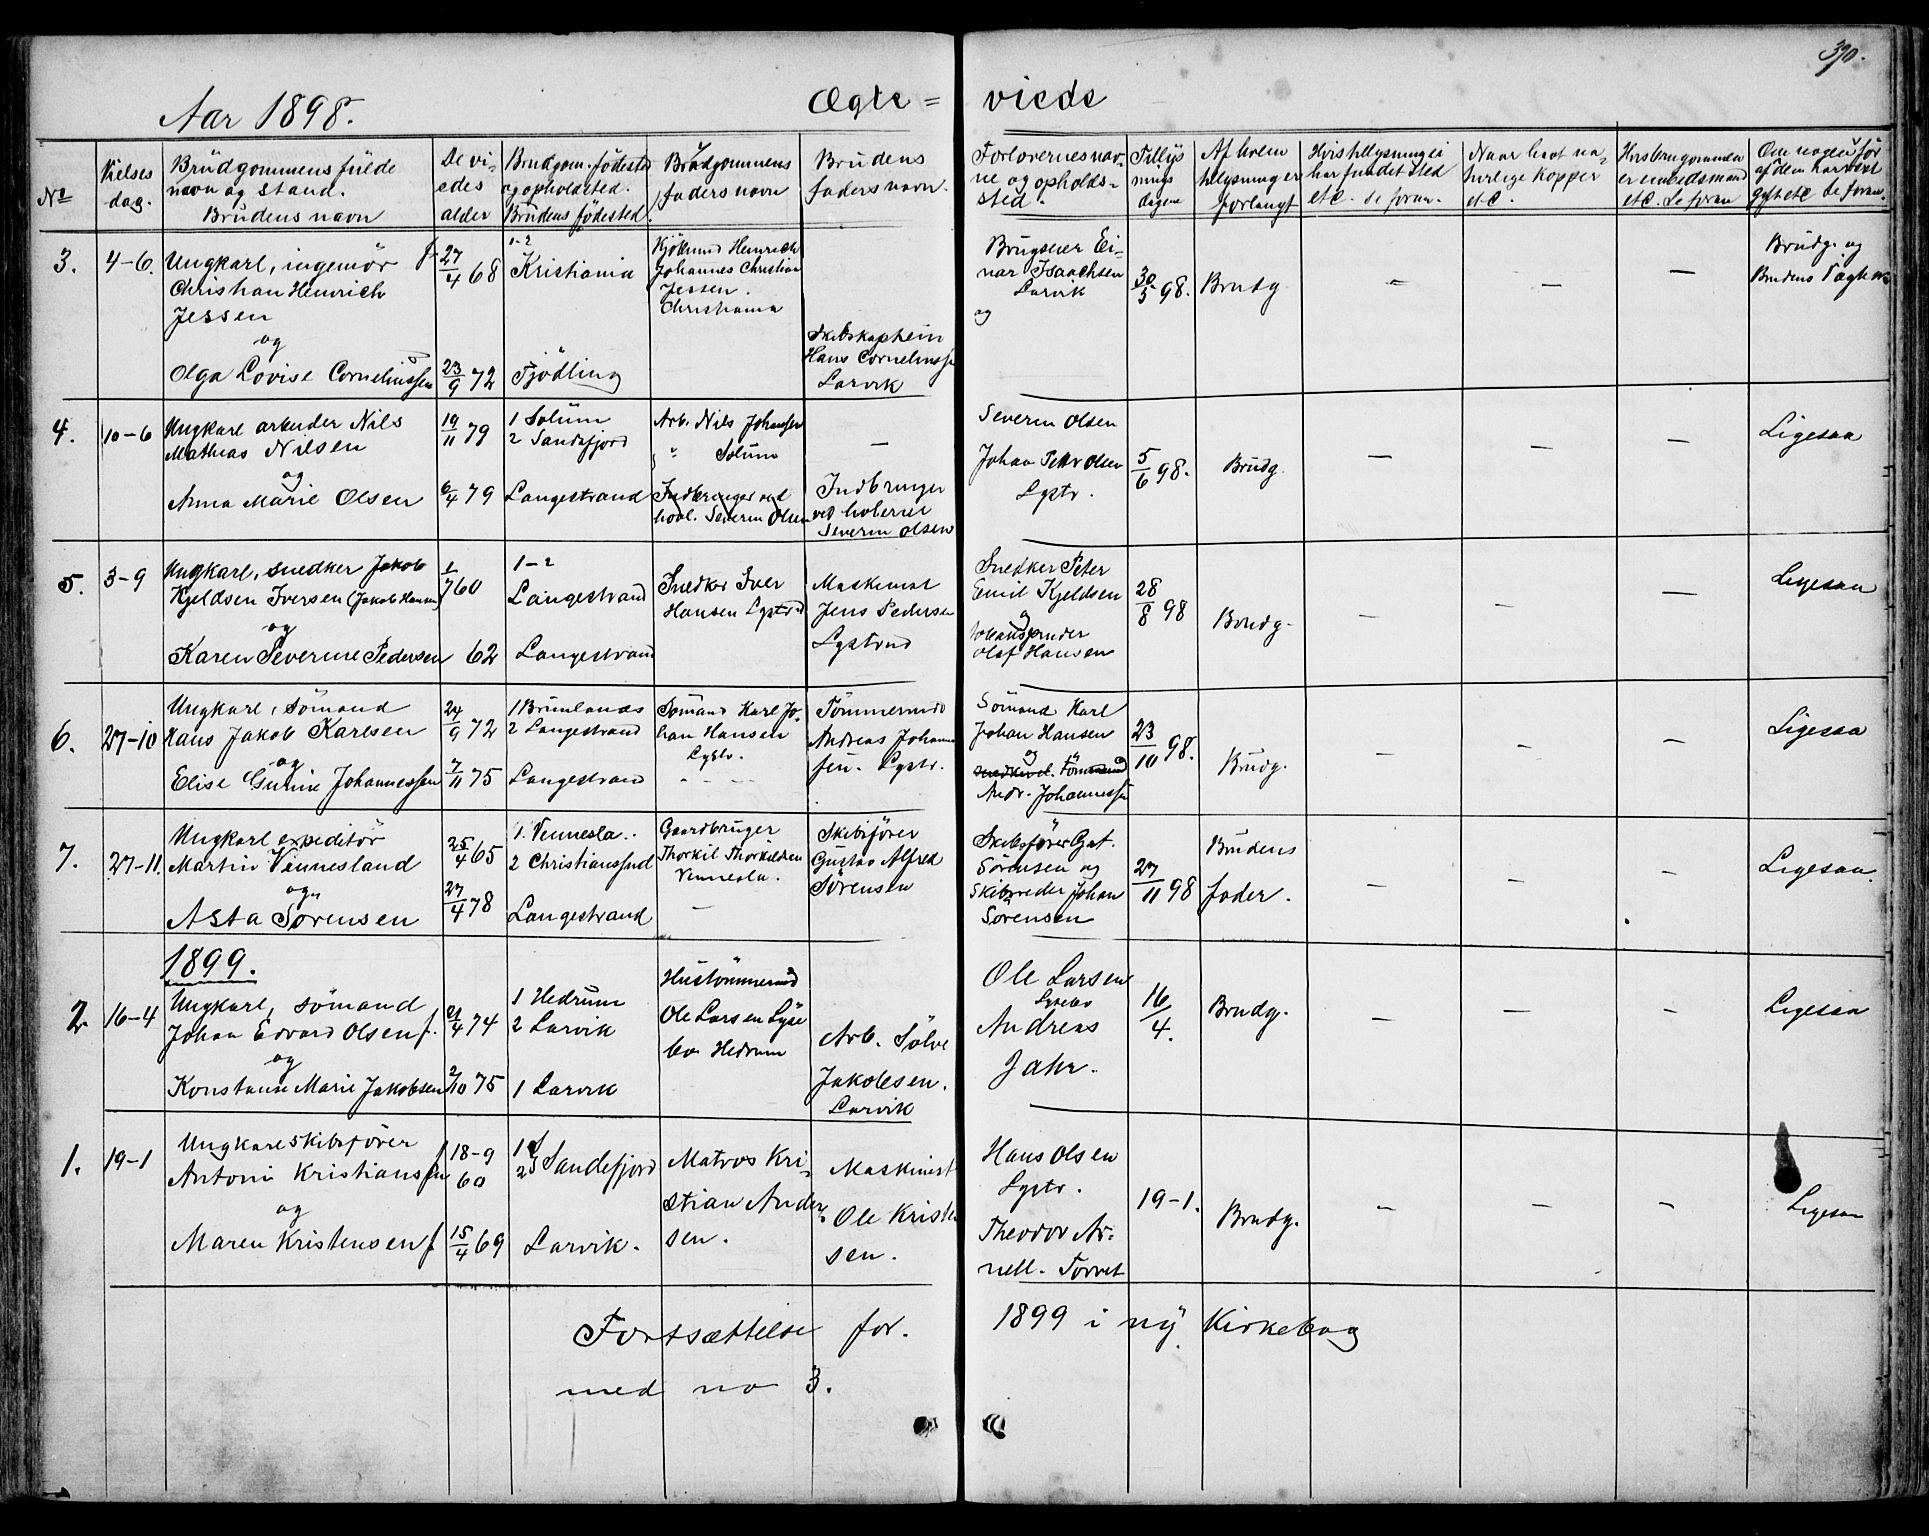 390.
Aar 1898.
Ægte = viede
No
Vielses
dag.
Brudgommens fulde
navn og stand.
Brudens navn
De vi-
edes
alder
Brudgom. fødested
og opholdsted.
Brudens fødested.
Brudgommens
faders navn
Brudens
faders navn.
Forlovernes nav-
ne og opholds-
sted.
Tillys
nings
dagene
Af hvem
tillysning er
forlangt
Hvis tillysning ei
har fundet sted
etc. se foran.
Naar havt na-
turlige Kopper
etc.
Hvis brugommen
er embedsmand
etc. Se foran
Om nogen
af dem har været
gift etc. se foran.
3.
4-6.
Ungkarl, ingeniør
Christian Heinrich
Jessen
og
Olga Lovise Corneliussen
27/4 68
23/9 72
1-2
Kristiania
Tjødling
Heinrich
Johannes Christian
Jessen.
Christiania
Skibskaptein
Hans Corneliussen
Larvik
Brugseier Ei-
nar Isaachsen
Larvik
og
30/5 98.
Brudg
-
-
-
Brudg. og
Brudens
4.
10-6
Ungkarl arbeider Nils
Mathias Nilsen
og
Anna Marie Olsen
19/11 79
6/4 79
1 Solum
2 Sandefjord
Langestrand
Arb. Nils Johansen
" Solum
Indbringer ved
hovl. Severin Olsen
-
Indbringer
ved høvleriet
Severin Olsen
Severin Olsen
Johan Petter Olsen
Lgstr.
5/6 98.
Brudg.
-
-
-
Ligesaa
5.
3-9
Ungkarl, snedker Jakob
Kjeldsen Iversen (Jakob Hansen)
og
Karen Severine Pedersen
1/7 60
62
1-2
Langestrand
Langestrand
Snedker Iver
Hansen Lgstrd
Maskinist
Jens Pedersen
Lgstrnd
Snedker Peter
Emil Kjeldsen
og
Olaf Hansen
28/8 98
Brudg.
-
-
-
Ligesaa
6.
27-10
Ungkarl, sømand
Hans Jakob Karlsen
og
Elise Gurine Johannessen
24/9 72
7/11 75
1 Brunlanæs
2 Langestrand
Langestrand
Sømand Karl Jo-
han Hansen
Lgstr.
- - -
Tømmermd
Andreas Johannes
sen. Lgstr.
Sømand Karl
Johan Hansen
og
Tømmermd
Andr. Johannessen
23/10 98.
Brudg.
-
-
-
Ligesaa
7.
27-11.
Ungkarl expeditør
Martin Vennesland
og
Asta Sørensen
25/4 65
27/4 78
1. Vennesla.
2 Christianssund
Langestrand
Gaardbruger
Thorkil Thorkildsen
Vennesla.
-
Skibsfører
Gustav Alfred
Sørensen
Skibsfører Gst.
Sørensen og
Skibsreder Johan
Sørensen
27/11 98
Brudens
fader.
-
-
-
Ligesaa.
1899.
2
16-4
Ungkarl, sømand
Johan Edvard Olsen f.
og
Konstanse Marie Jakobsen
21/4 74
2/10 75
1 Hedrum
2 Larvik
1 Larvik
Hustømmermd
Ole Larsen Lyse
bo Hedrum
Arb. Sølve
Jakobsen.
Larvik
Ole Larsen
Lysebo
Andreas
Jahr.
16/4.
Brudg.
-
-
-
Ligesaa
1.
19-1
Ungkarl skibsfører
Antoni Kristiansen
og
Maren Kristensen f
18-9
60
15/4 69
1
2 Sandefjord
Larvik.
Matros Kri-
stian Ander
sen.
Maskinist
Ole Kristen
sen.
Hans Olsen
Lgstr.
Theodor Ar-
nell. Torvet
19-1.
Brudg.
-
-
-
Ligesaa
Fortsættelse for. 1899 i ny Kirkebog
med no 3.